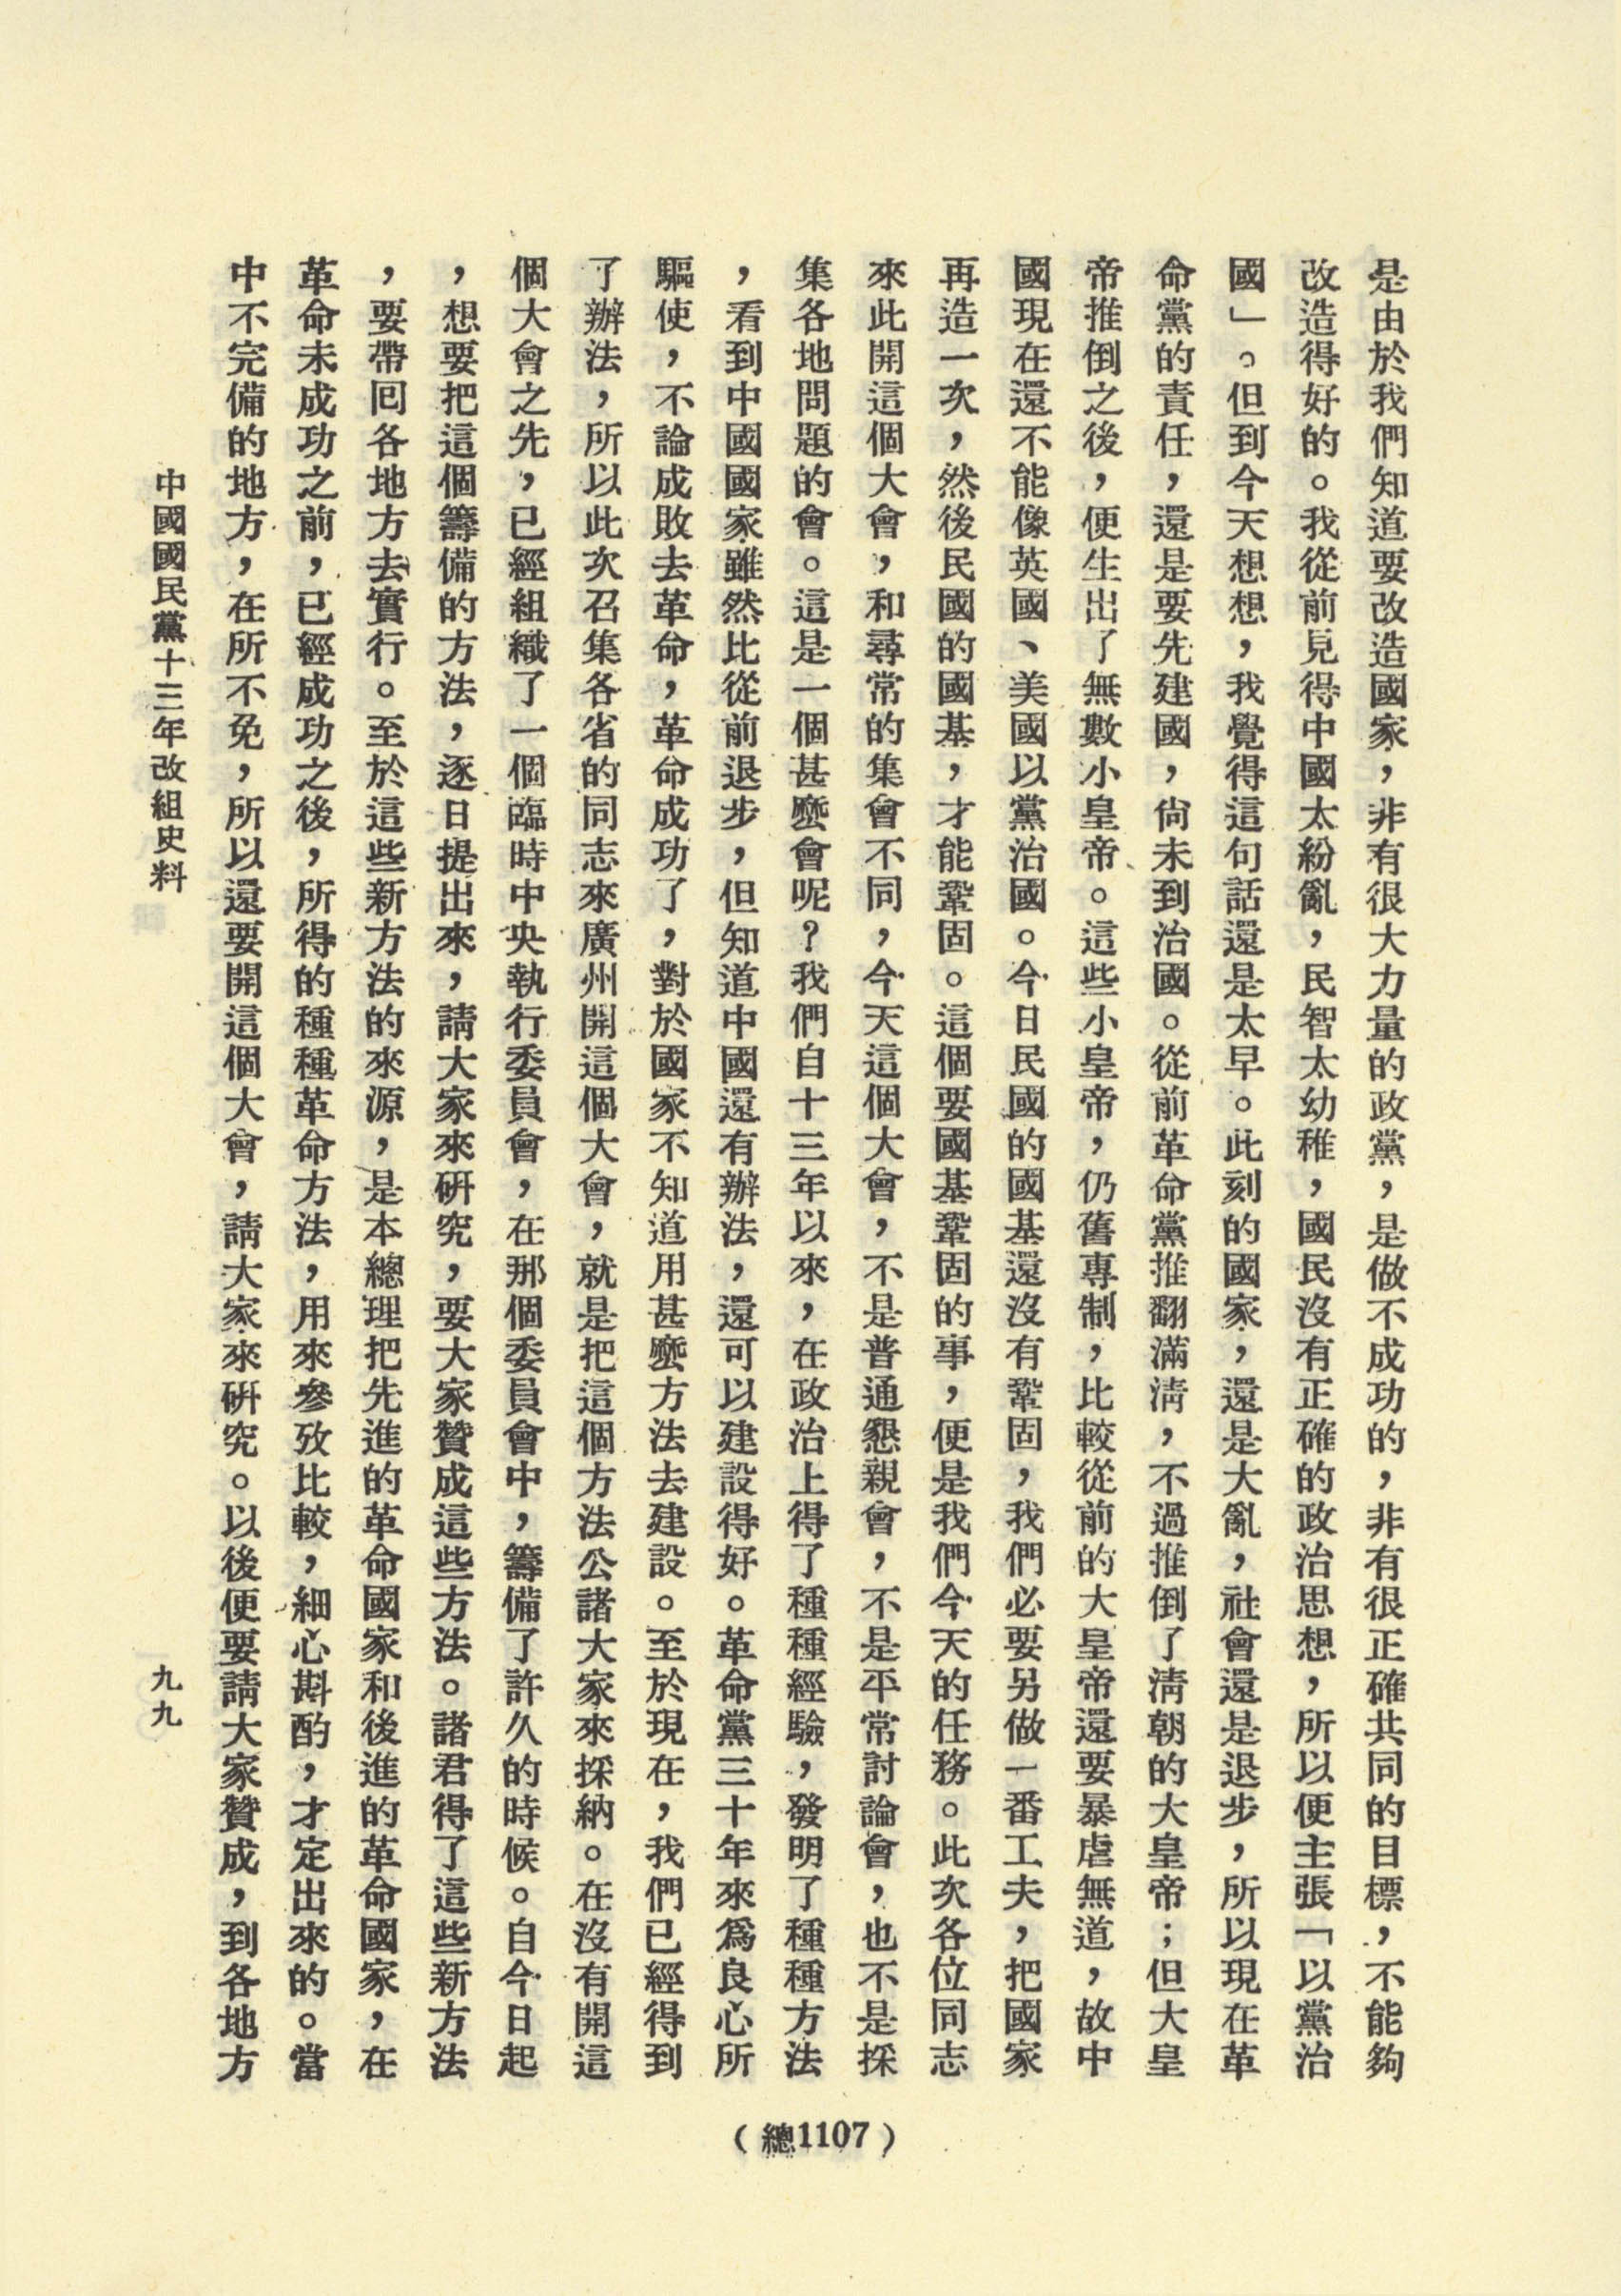 是由於我們知道要改造國家，非有很大力量的政黨，是做不成功的，非有很正確共同的目標，不能夠
改造得好的。我從前見得中國太紛亂，民智太幼稚，國民沒有正確的政治思想，所以便主張「以黨治
國」。但到今天想想，我覺得這句話還是太早。此刻的國家，還是大亂，社會還是退步，所以現在革
命黨的責任，還是要先建國，尙未到治國。從前革命黨推翻滿淸，不過推倒了淸朝的大皇帝；但大皇
帝推倒之後，便生出了無數小皇帝、。這些小皇帝，仍舊專制，比較從前的大皇帝還要暴虐無道，故中
國現在還不能像英國、美國以黨治國。今日民國的國基還沒有鞏固，我們必要另做一番工夫，把國家
再造一次，然後民國的國基，才能鞏固。這個要國基鞏固的事，便是我們今天的任務。此次各位同志
來此開這個大會，和尋常的集會不同，今天這個大會，不是普通懇親會，不是平常討論會，也不是採
集各地問題的會。這是一個甚麼會呢？我們自十三年以來，在政治上得了種種經驗，發明了種種方法
，看到中國國家雖然比從前退步，但知道中國還有辦法，還可以建設得好。革命黨三十年來爲良心所
驅使，不論成敗去革命，革命成功了，對於國家不知道用甚麼方法去建設。至於現在，我們已經得到
了辦法，所以此次召集各省的同志來廣州開這個大會，就是把這個方法公諸大家來採納。在沒有開這
個大會之先，已經組織了一個臨時中央執行委員會，在那個委員會中，籌備了許久的時候。自今日起
，想要把這個籌備的方法，逐日提出來，請大家來硏究，要大家贊成這些方法。諸君得了這些新方法
，要帶回各地方去實行。至於這些新方法的來源，是本總理把先進的革命國家和後進的革命國家，在
革命未成功之前，已經成功之後，所得的種種革命方法，用來參攷比較，細心斟酌，才定出來的。當
中不完備的地方，在所不免，所以還要開這個大會，請大家來硏究。以後便要請大家贊成，到各地方
中國國民黨十三年改組史料
九九
（總1107）